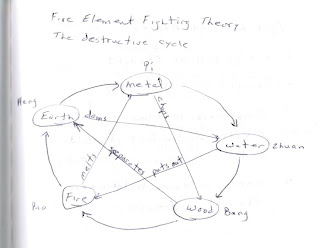 Fire Element Fighting Theory
The destructive cycle
qi
metal
Heng
Earth
dams
chops
water
zhuan
melts
separates
puts out
Fire
Pao
Wood
Bang